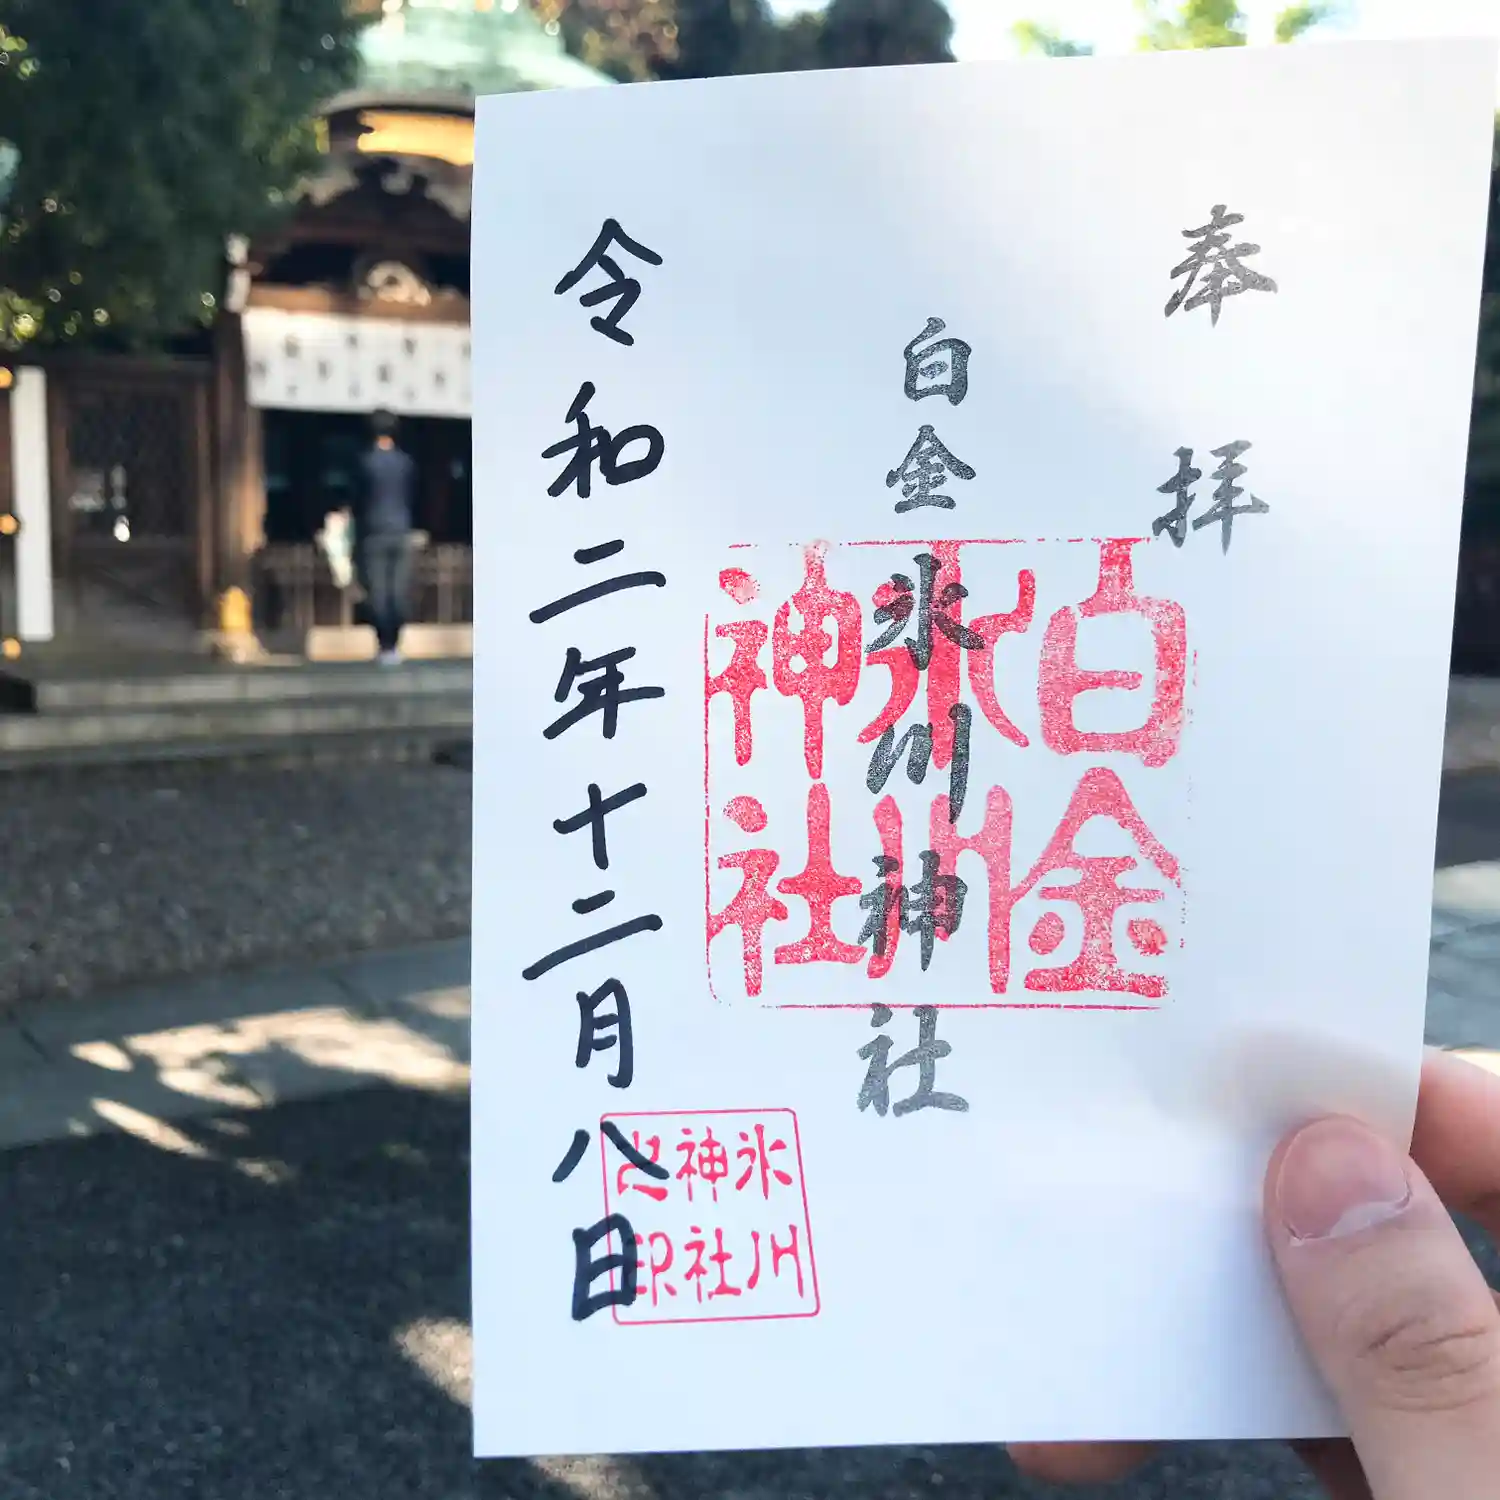 奉拝
白金氷川神社
白金
氷川
神社
令和二年十二月八日
氷川
神社
之印